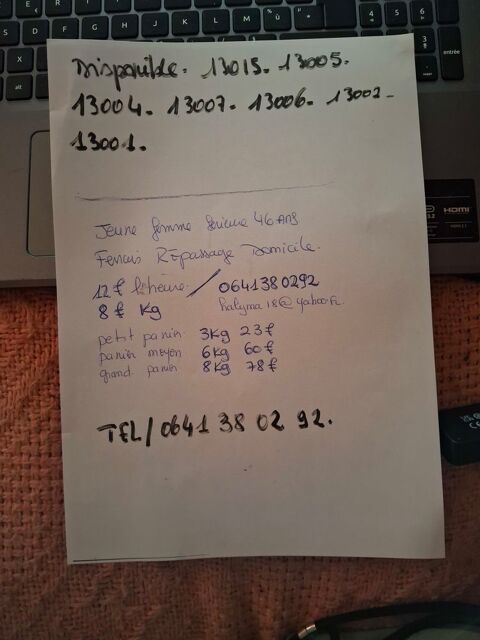 Disponible. 13015. 13005.
13004. 13007. 13006. 13002.
13001.
Jeune femme sérieuse 46 ANS
Repassage Domicile.
12 € l'heure / 0641380292
8 € Kg
petit panier 3Kg 23 €
panier moyen 6Kg 60 €
grand panier 8Kg 78 €
TEL/0641 38 02 92.
HDMI
entrée
alt